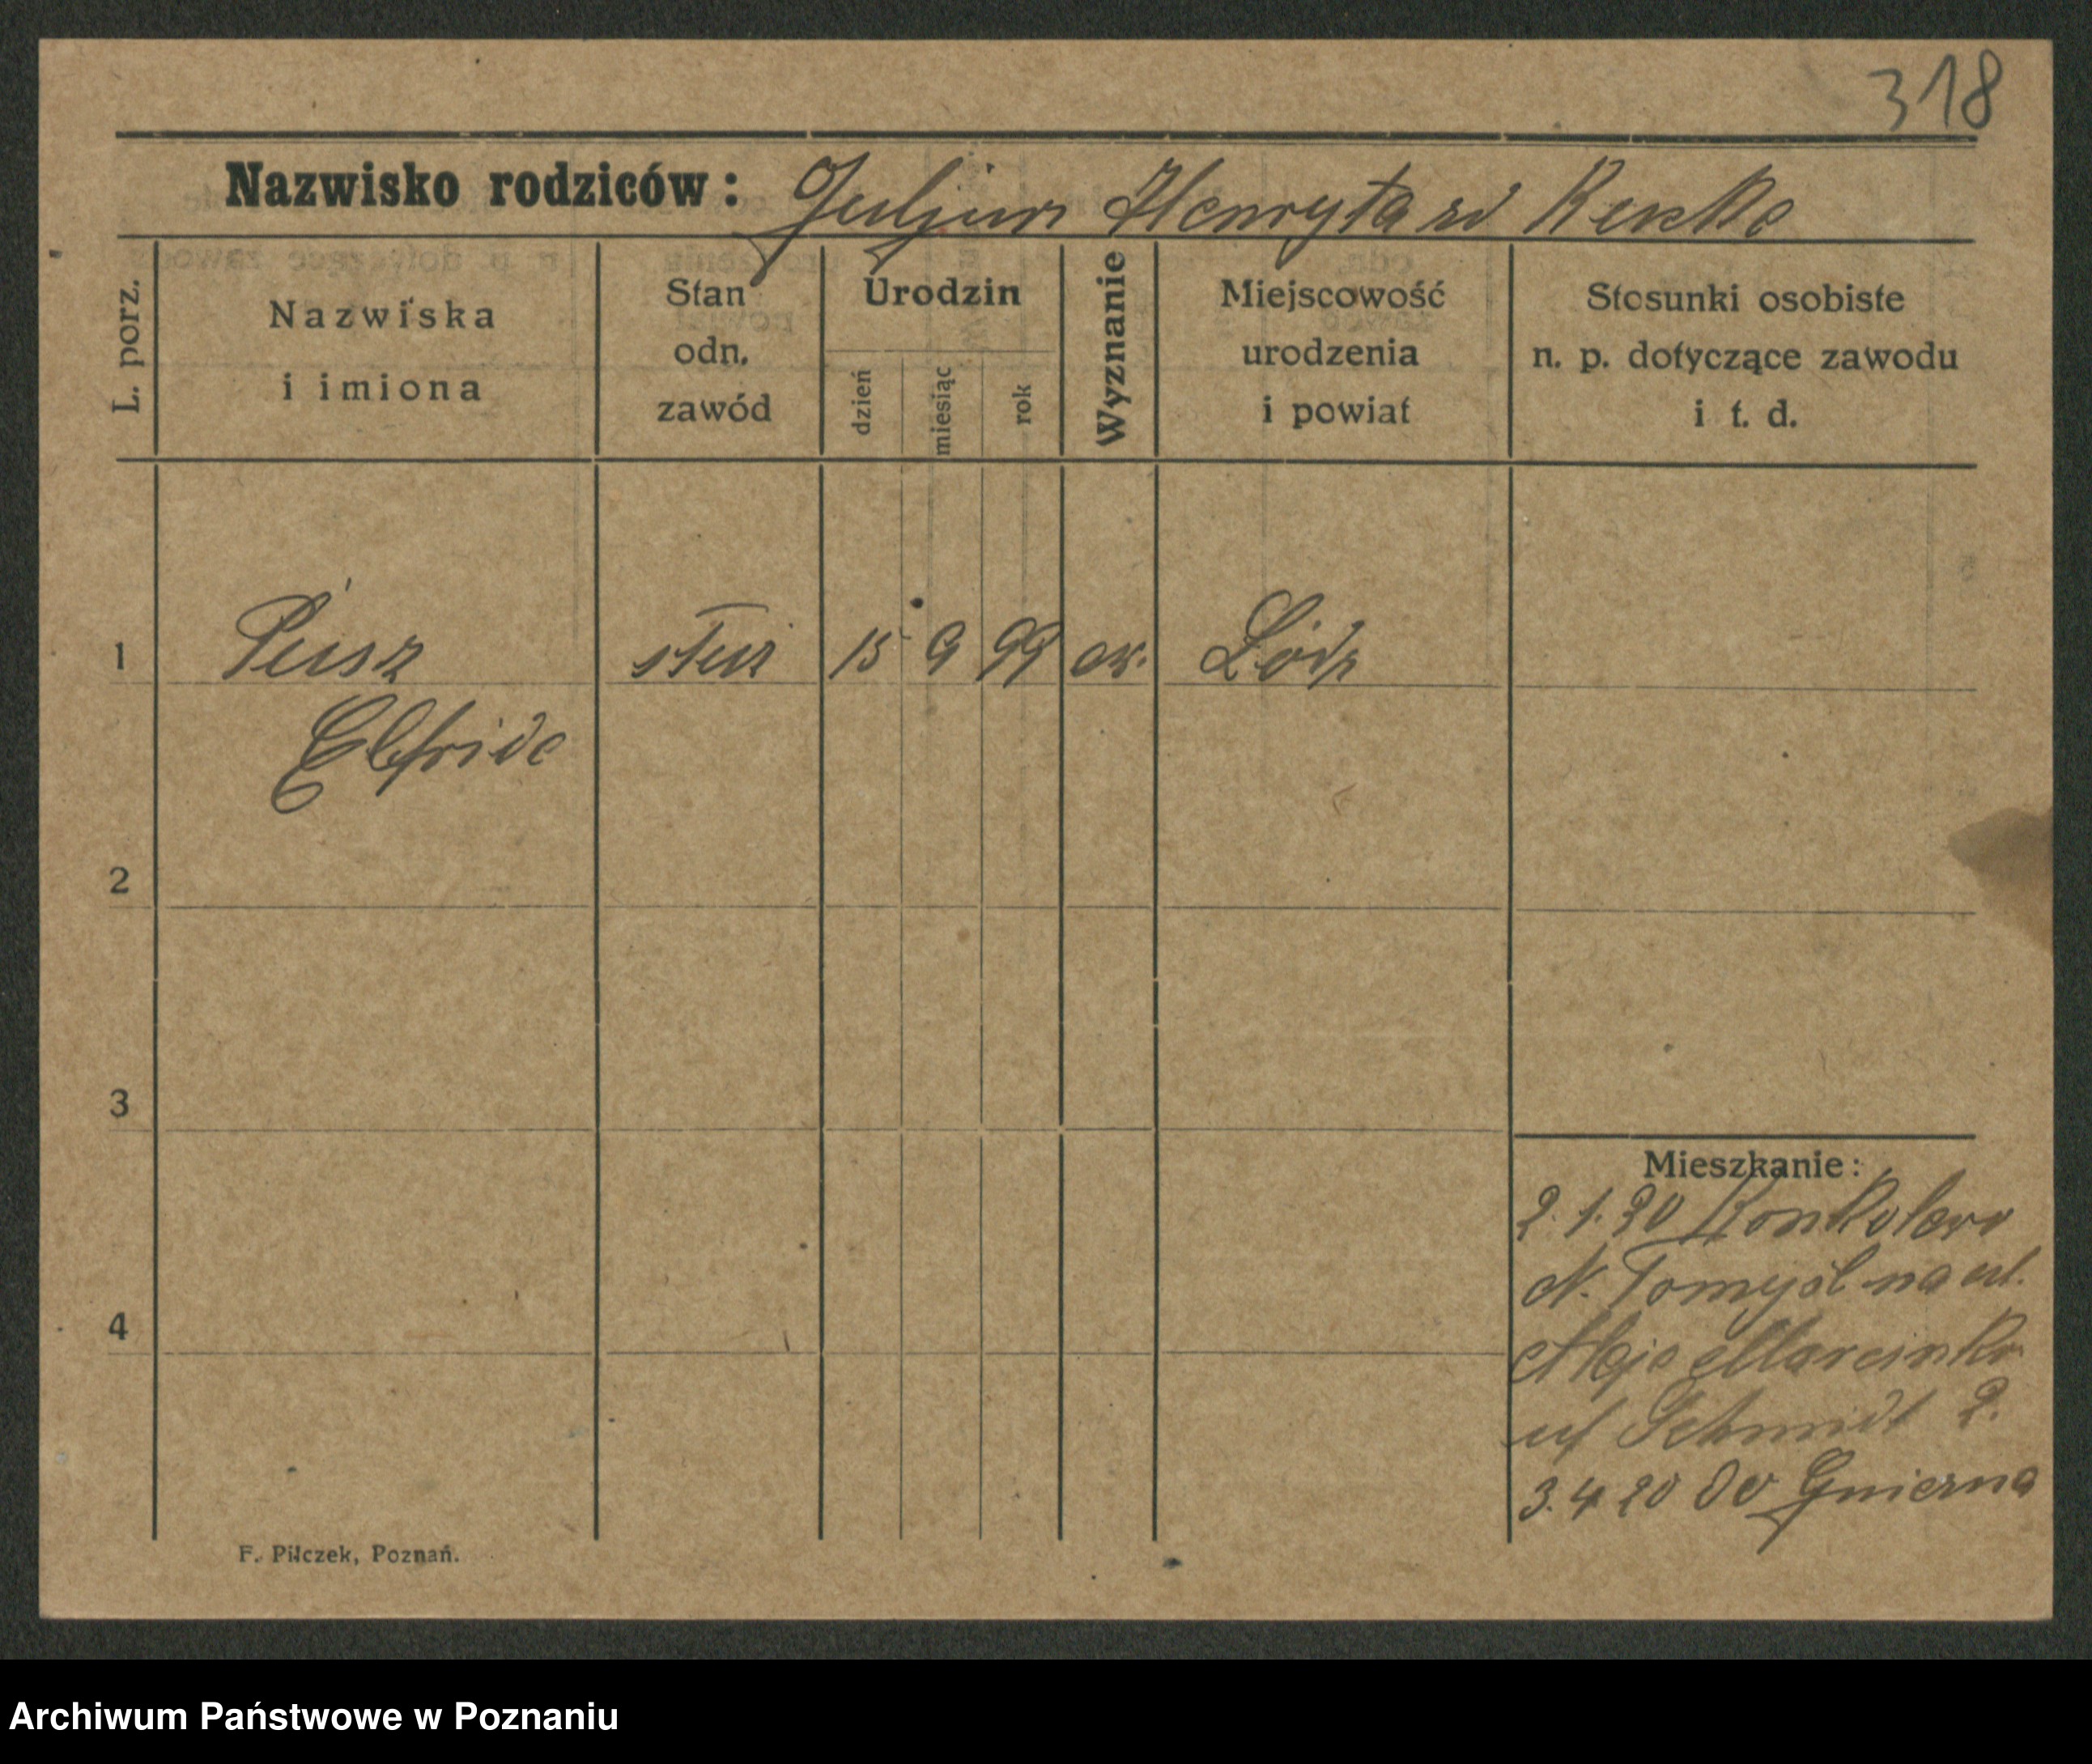 318
Nazwisko rodziców: Juljan Henryta zd Renke
L. porz.
Nazwiska
i imiona
Stan
odn.
zawód
Urodzin
dzień
miesiąc
rok
Wyznanie
Miejscowość
urodzenia
i powiat
Stosunki osobiste
n. p. dotyczące zawodu
i t. d.
1 Pusz służ 15 9 99 ew. Łódz
Elfride
2
3
4
Mieszkanie:
2.1.30
N. Tomyśl na ul.
Aleje Marcinko
Schmidt 2.
3.4 30 do
F. Pilczek, Poznań.
Archiwum Państwowe w Poznaniu